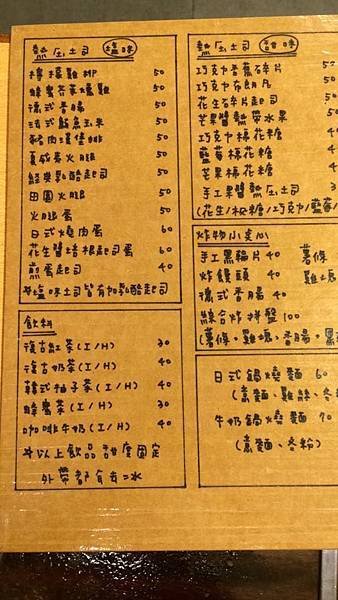 熱压土司 鹹味
檸檬雞排 50
蜂蜜芥末燻雞 50
德式香腸 50
法式鮪魚玉米 50
豬肉漢堡排 50
夏威夷火腿 50
經典乳酪起司 50
田園火腿 50
火腿蛋 50
日式燒肉蛋 60
花生醬培根起司蛋 60
煎蛋起司 40
*鹹味土司皆有加乳酪起司
飲料
復古紅茶(I/H) 30
復古奶茶(I/H) 40
韓式柚子茶(I/H) 40
蜂蜜茶(I/H) 30
咖啡牛奶(I/H) 40
*以上飲品甜度固定
外帶都有去冰
熱压土司 甜味
巧克力香蕉碎片
巧克力布朗尼
花生碎片起司
芒果醬熱帶水果
巧克力棉花糖
藍莓棉花糖
芒果棉花糖
手工果醬熱压土司
(花生/巧克力/藍莓
炸物小点心
手工黑輪片 40 薯條
炸饅頭 40 雞塊
德式香腸 40
綜合炸拼盤 100
(薯條、雞塊、香腸、黑
日式鍋燒麵 60
(意麵、雞絲、冬
牛奶鍋燒麵 70
(意麵、冬粉)